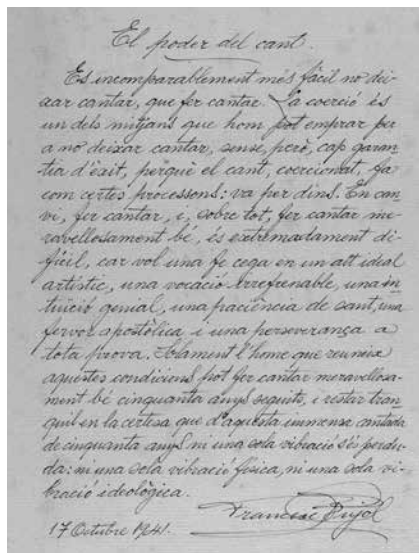 El poder del cant.
Es incomparablement més fàcil no dei-
xar cantar, que fer cantar. La coerció és
un dels mitjans que hom pot emprar per
a no deixar cantar, sense, però, cap garan-
tia d'èxit, perquè el cant, coercionat, fa
com certes processons: va per dins. En can-
vi, fer cantar, i, sobre tot, fer cantar me-
ravellosament bé, és extremadament di-
fícil, car vol una fe cega en un alt ideal
artístic, una vocació irrefrenable, una in-
tuició genial, una paciència de sant, una
fervor apostòlica i una perseverança a
tota prova. Solament l'home que reuneix
aquestes condicions pot fer cantar meravellosa-
ment bé cinquanta anys seguits, i restar tran-
quil en la certesa que d'aquesta immensa cantada
de cinquanta anys ni una sola vibració s'és perdu-
da: ni una sola vibració física, ni una sola vi-
bració ideològica.
Francesc Pujol
17 Octubre 1941.